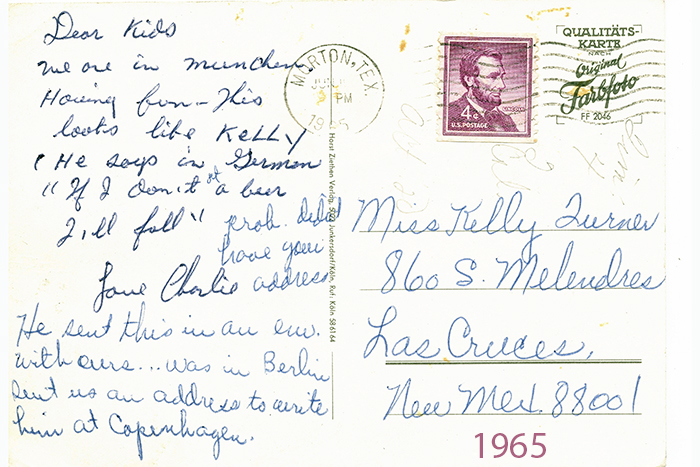 Dear Kids
we are in munchen
Having fun - This
looks like Kelly
(He says in German
"If I don't get a beer
I'll fall"
prob. didn't
have your
address
Love Charlie
He sent this in an env.
with ours... was in Berlin
sent us an address to write
him at Copenhagen.
MORTON, TEX.
PM
LINCOLN
4¢
U.S. POSTAGE
QUALITÄTS-
KARTE
NACH
Original
Farbfoto
FF 2046
Horst Ziethen Verlag, 500 Junkersdorf/Köln, Ruf: Köln 586164
Miss Kelly Turner
860 S. Melendres
Las Cruces,
New Mex. 88001
1965